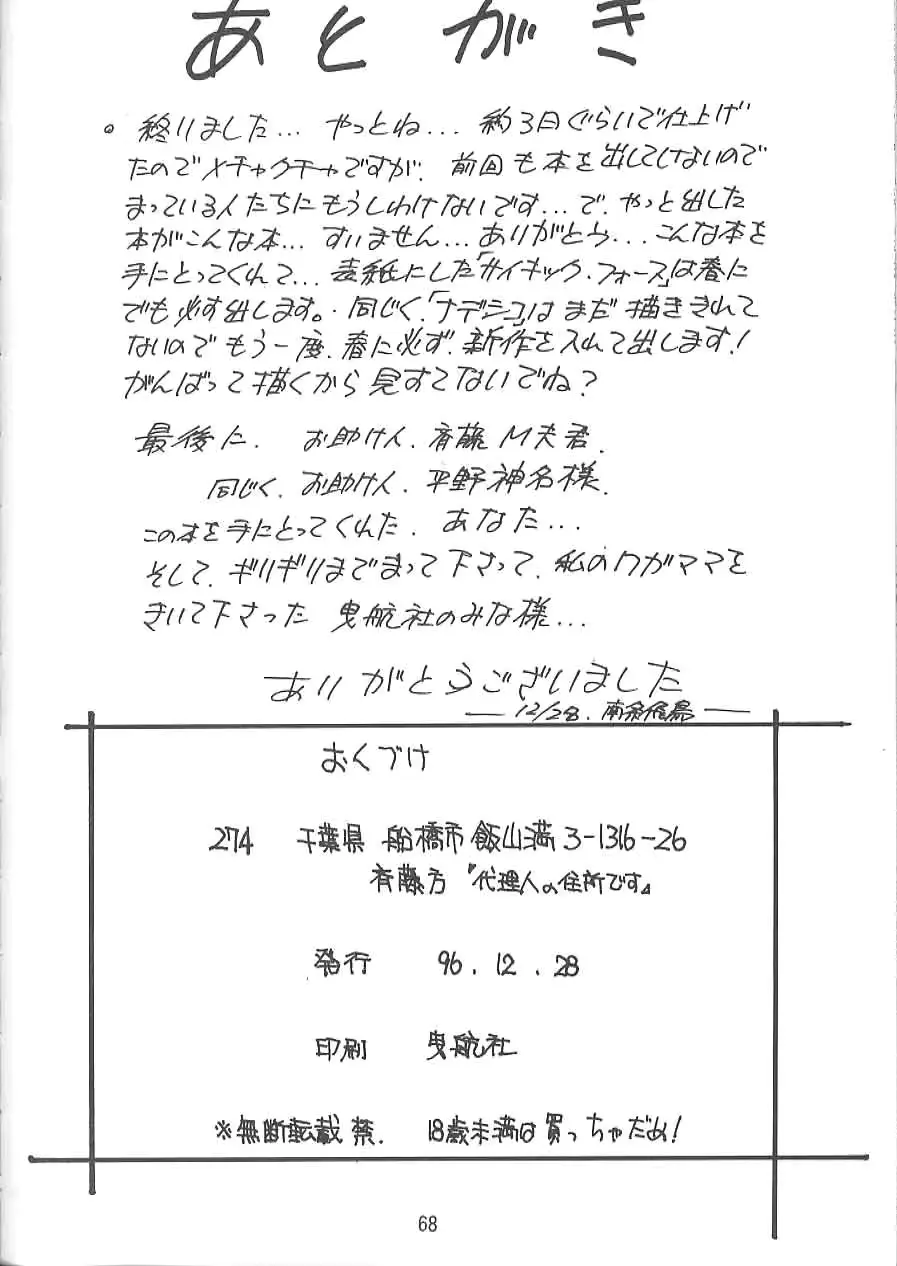 あとがき
。終りました… やっとね… 約3日ぐらいで仕上げ
たのでメチャクチャですが、前回も本を出してしないので
まっている人たちにもうしわけないです…で、やっと出した
本がこんな本… すいません…ありがとう…こんな本を
手にとってくれて… 表紙にした「サイキック・フォース」は春に
でも必す出します。同じく、「ナデシコ」はまだ描ききれて
ないのでもう一度、春に必ず、新作を入れて出します!
がんばって描くから見すてないでね?
最後に、お助け人、斉藤M夫君、
同じく、お助け人、平野神名様、
この本を手にとってくれた、あなた…
そして、ギリギリまでまって下さって、私のワガママを
きいて下さった 曳航社のみな様…
ありがとうございました
— 12/28. 南条飛鳥 —
おくづけ
274 千葉県 船橋市 飯山満3-1316-26
斉藤方『代理人の住所です』
発行 96.12.28
印刷 曳航社
※無断転載禁. 18歳未満は買っちゃだめ!
68